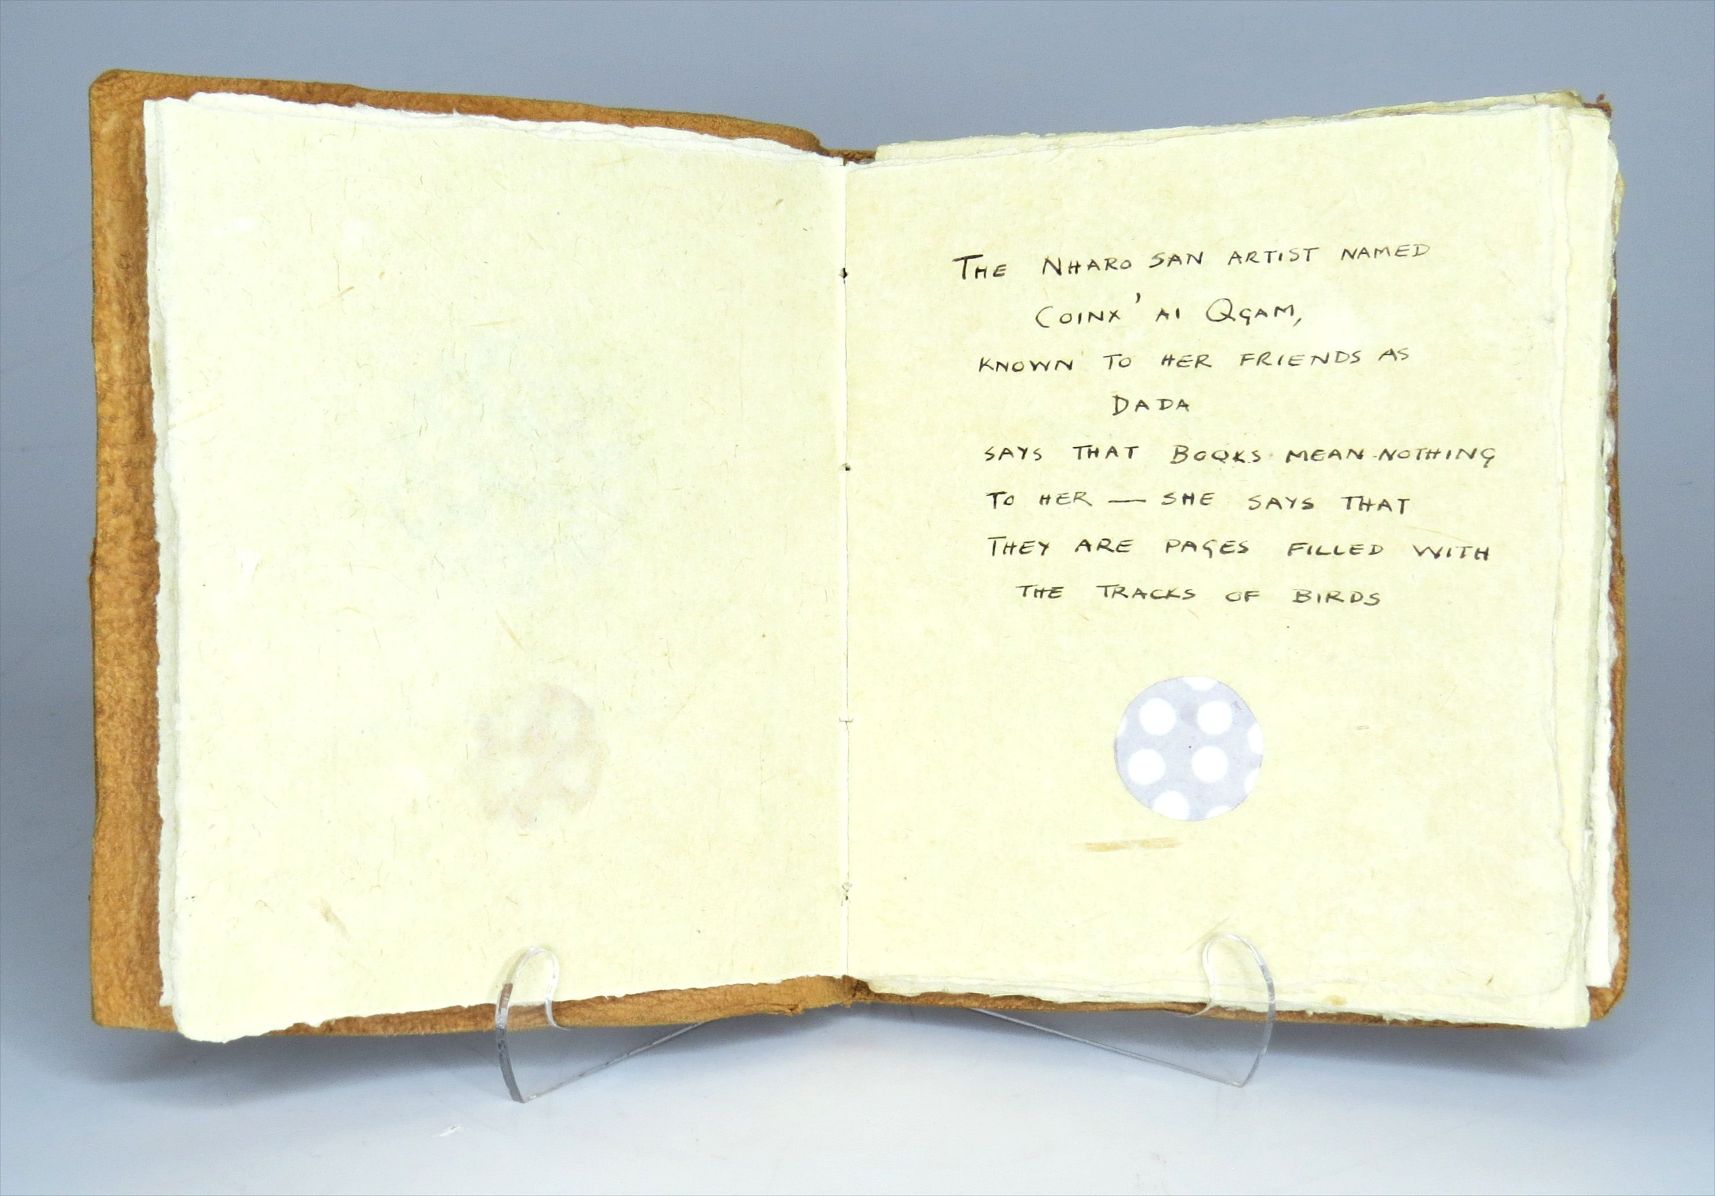 THE NHARO SAN ARTIST NAMED
COINX' AI QGAM,
KNOWN TO HER FRIENDS AS
DADA
SAYS THAT BOOKS MEAN NOTHING
TO HER — SHE SAYS THAT
THEY ARE PAGES FILLED WITH
THE TRACKS OF BIRDS